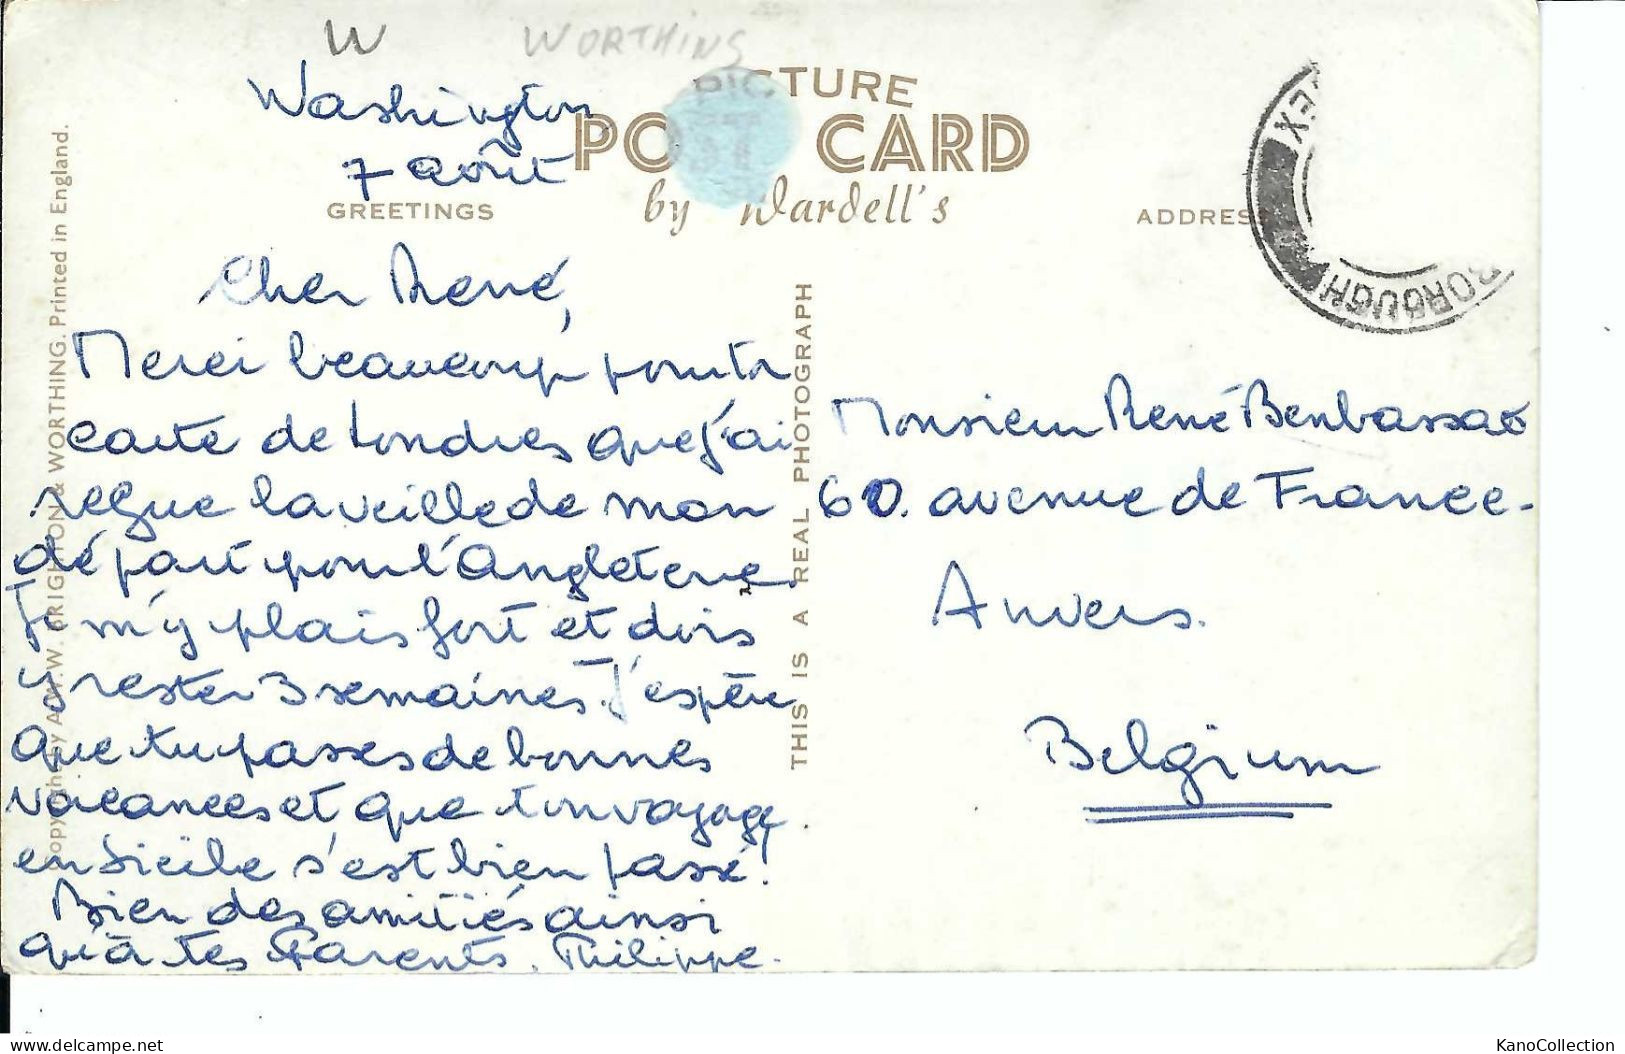 W
WORTHING
PICTURE
POST CARD
by Wardell's
GREETINGS
ADDRESS
Washington
7 août
Cher René,
Merci beaucoup pour ta
carte de Londres que j'ai
reçue la veille de mon
départ pour l'Angleterre
Je m'y plais fort et dois
y rester 3 semaines. J'espère
que tu passes de bonnes
vacances et que ton voyage
en Sicile s'est bien passé!
Bien des amitiés ainsi
qu'à tes Parents. Philippe.
THIS IS A REAL PHOTOGRAPH
BRIGHTON & WORTHING. Printed in England.
Monsieur René Benbassat
60. avenue de France.
Anvers.
Belgium
KanoCollection